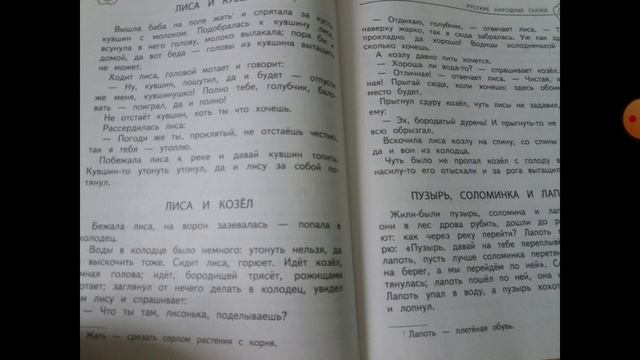 ЛИСА И КУВШИН
Вышла баба на поле жать¹ и спрятала за кусты
кувшин с молоком. Подобралась к кувшину лиса,
всунула в него голову, молоко вылакала; пора бы и
домой, да вот беда — головы из кувшина вытащить
не может.
Ходит лиса, головой мотает и говорит:
— Ну, кувшин, пошутил, да и будет — отпусти
же меня, кувшинушко! Полно тебе, голубчик, бало-
вать — поиграл, да и полно!
Не отстаёт кувшин, хоть ты что хочешь.
Рассердилась лиса:
— Погоди же ты, проклятый, не отстаёшь честью,
так я тебя — утоплю.
Побежала лиса к реке и давай кувшин топить.
Кувшин-то утонуть утонул, да и лису за собой по-
тянул.
ЛИСА И КОЗЁЛ
Бежала лиса, на ворон зазевалась — попала в
колодец.
Воды в колодце было немного: утонуть нельзя, да
и выскочить тоже. Сидит лиса, горюет. Идёт козёл,
умная голова; идёт, бородищей трясёт, рожищами
мотает; заглянул от нечего делать в колодец, увидел
там лису и спрашивает:
— Что ты там, лисонька, поделываешь?
¹ Жать — срезать серпом растения с корня.
РУССКИЕ НАРОДНЫЕ СКАЗКИ
— Отдыхаю, голубчик, — отвечает лиса. —
наверху жарко, так я сюда забралась. Уж как здесь
прохладно да хорошо! Водицы холодненькой —
сколько хочешь.
А козлу давно пить хочется.
— Хороша ли вода-то? — спрашивает козёл.
— Отличная! — отвечает лиса. — Чистая,
ная! Прыгай сюда, коли хочешь; здесь обоим
место будет.
Прыгнул сдуру козёл, чуть лисы не задавил,
ему:
— Эх, бородатый дурень! И прыгнуть-то не
всю обрызгал.
Вскочила лиса козлу на спину, со спины
да и вон из колодца.
Чуть было не пропал козёл с голоду в
насилу-то его отыскали и за рога вытащили
ПУЗЫРЬ, СОЛОМИНКА И ЛАПОТЬ
Жили-были пузырь, соломина и лапоть
они в лес дрова рубить, дошли до реки
ют: как через реку перейти? Лапоть
рю: «Пузырь, давай на тебе переплывём
лапоть, пусть лучше соломинка перетянется
на берег, а мы перейдём по ней».
тянулась; лапоть пошёл по ней, она
Лапоть упал в воду, а пузырь хохотал
и лопнул.
¹ Лапоть — плетёная обувь.